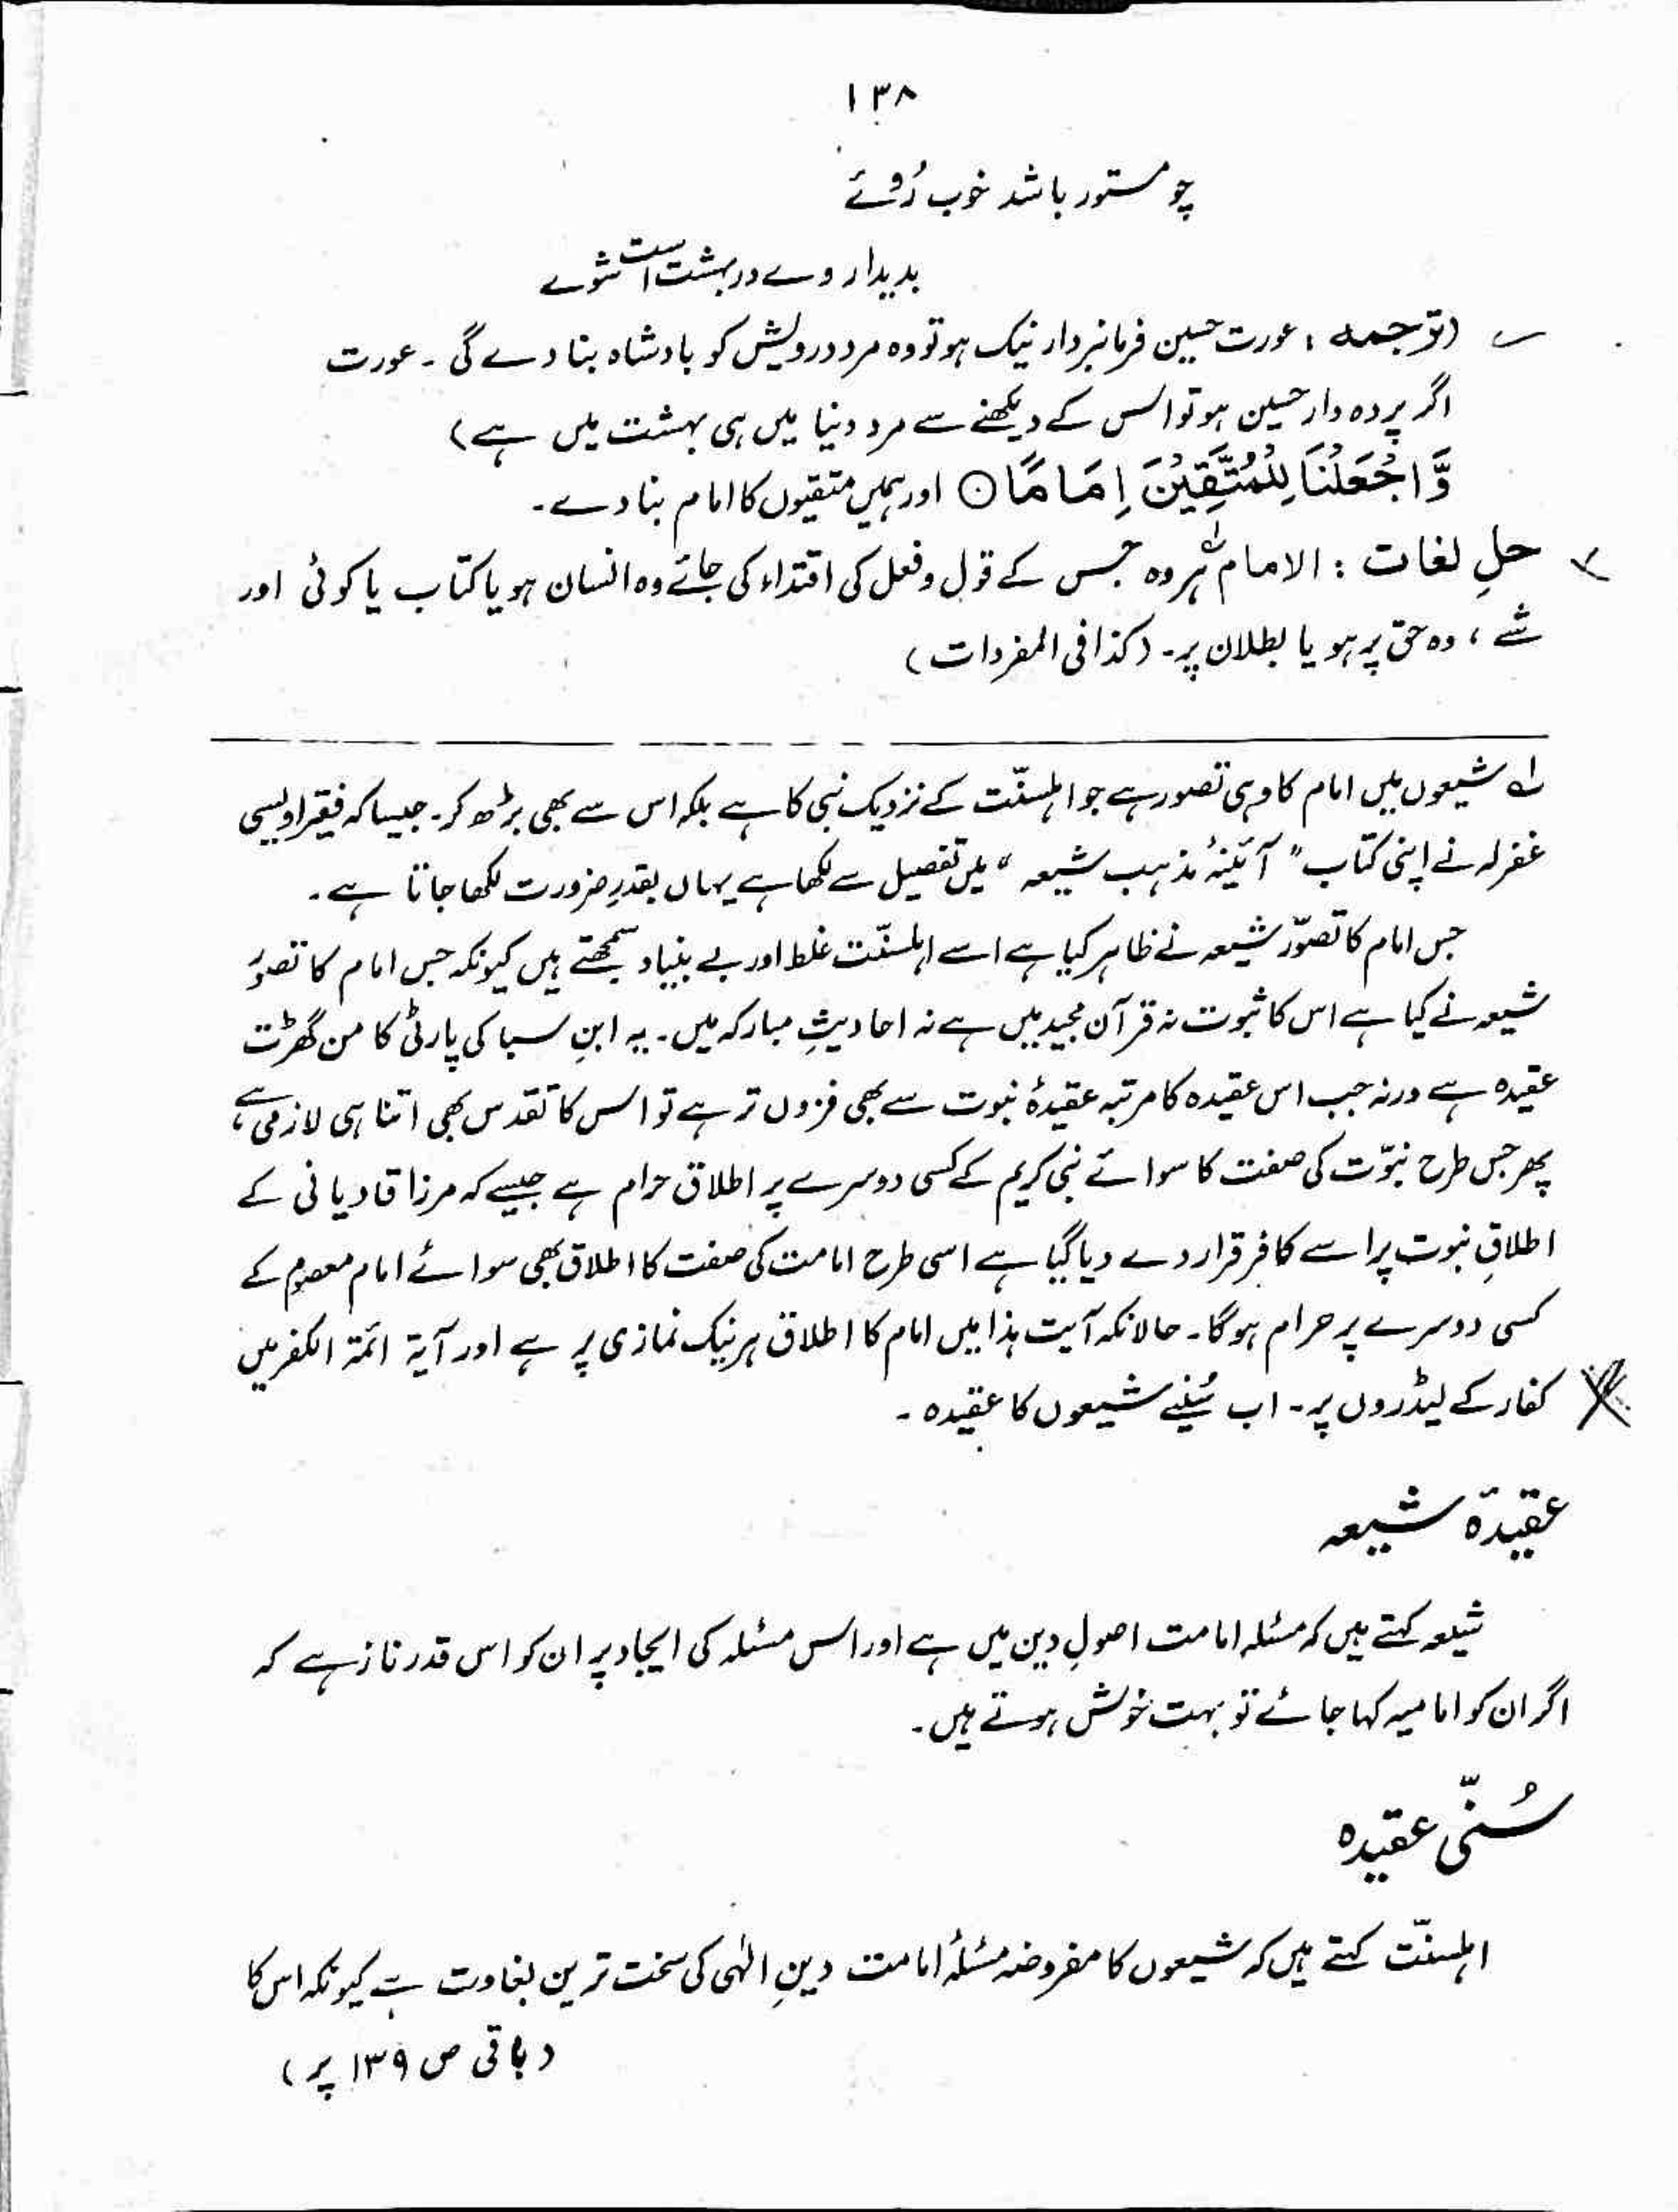 ۱۳۸
چو مستور باشد خوب رُوئے
بدیدار وے در بہشت است شوے
(ترجمہ: عورت حسین فرمانبردار نیک ہو تو وہ مرد درویش کو بادشاہ بنا دے گی۔ عورت
اگر پردہ دار حسین ہو تو اس کے دیکھنے سے مرد دنیا میں ہی بہشت میں ہے)
وَّاجْعَلْنَا لِلْمُتَّقِیْنَ اِمَامًا۝ اور ہمیں متقیوں کا امام بنا دے۔
حلِ لغات : الامام لہ ہر وہ جس کے قول و فعل کی اقتداء کی جائے وہ انسان ہو یا کتاب یا کوئی اور
شے، وہ حق پر ہو یا بطلان پر۔ (کذا فی المفردات)
لہ شیعوں میں امام کا وہی تصور ہے جو اہلسنّت کے نزدیک نبی کا ہے بلکہ اس سے بھی بڑھ کر۔ جیسا کہ فقیر اویسی
غفرلہ نے اپنی کتاب "آئینۂ مذہب شیعہ" میں تفصیل سے لکھا ہے یہاں بقدرِ ضرورت لکھا جاتا ہے۔
جس امام کا تصوّر شیعہ نے ظاہر کیا ہے اسے اہلسنّت غلط اور بے بنیاد سمجھتے ہیں کیونکہ جس امام کا تصوّر
شیعہ نے کیا ہے اس کا ثبوت نہ قرآن مجید میں ہے نہ احادیثِ مبارکہ میں۔ یہ ابنِ سبا کی پارٹی کا من گھڑت
عقیدہ ہے ورنہ جب اس عقیدہ کا مرتبہ عقیدۂ نبوت سے بھی فزوں تر ہے تو اس کا تقدس بھی اتنا ہی لازمی ہے،
پھر جس طرح نبوّت کی صفت کا سوائے نبی کریم کے کسی دوسرے پر اطلاق حرام ہے جیسے کہ مرزا قادیانی کے
اطلاقِ نبوت پر اسے کافر قرار دے دیا گیا ہے اسی طرح امامت کی صفت کا اطلاق بھی سوائے امام معصوم کے
کسی دوسرے پر حرام ہوگا۔ حالانکہ آیت ہذا میں امام کا اطلاق ہر نیک نمازی پر ہے اور آیۃ ائمۃ الکفر میں
کفار کے لیڈروں پر۔ اب سُنیے شیعوں کا عقیدہ۔
عقیدۂ شیعہ
شیعہ کہتے ہیں کہ مسئلہ امامت اصولِ دین میں ہے اور اس مسئلہ کی ایجاد پر ان کو اس قدر ناز ہے کہ
اگر ان کو امامیہ کہا جائے تو بہت خوش ہوتے ہیں۔
سُنّی عقیدہ
اہلسنّت کہتے ہیں کہ شیعوں کا مفروضہ مسئلۂ امامت دینِ الٰہی کی سخت ترین بغاوت ہے کیونکہ اس کا
(باقی ص ۱۳۹ پر)